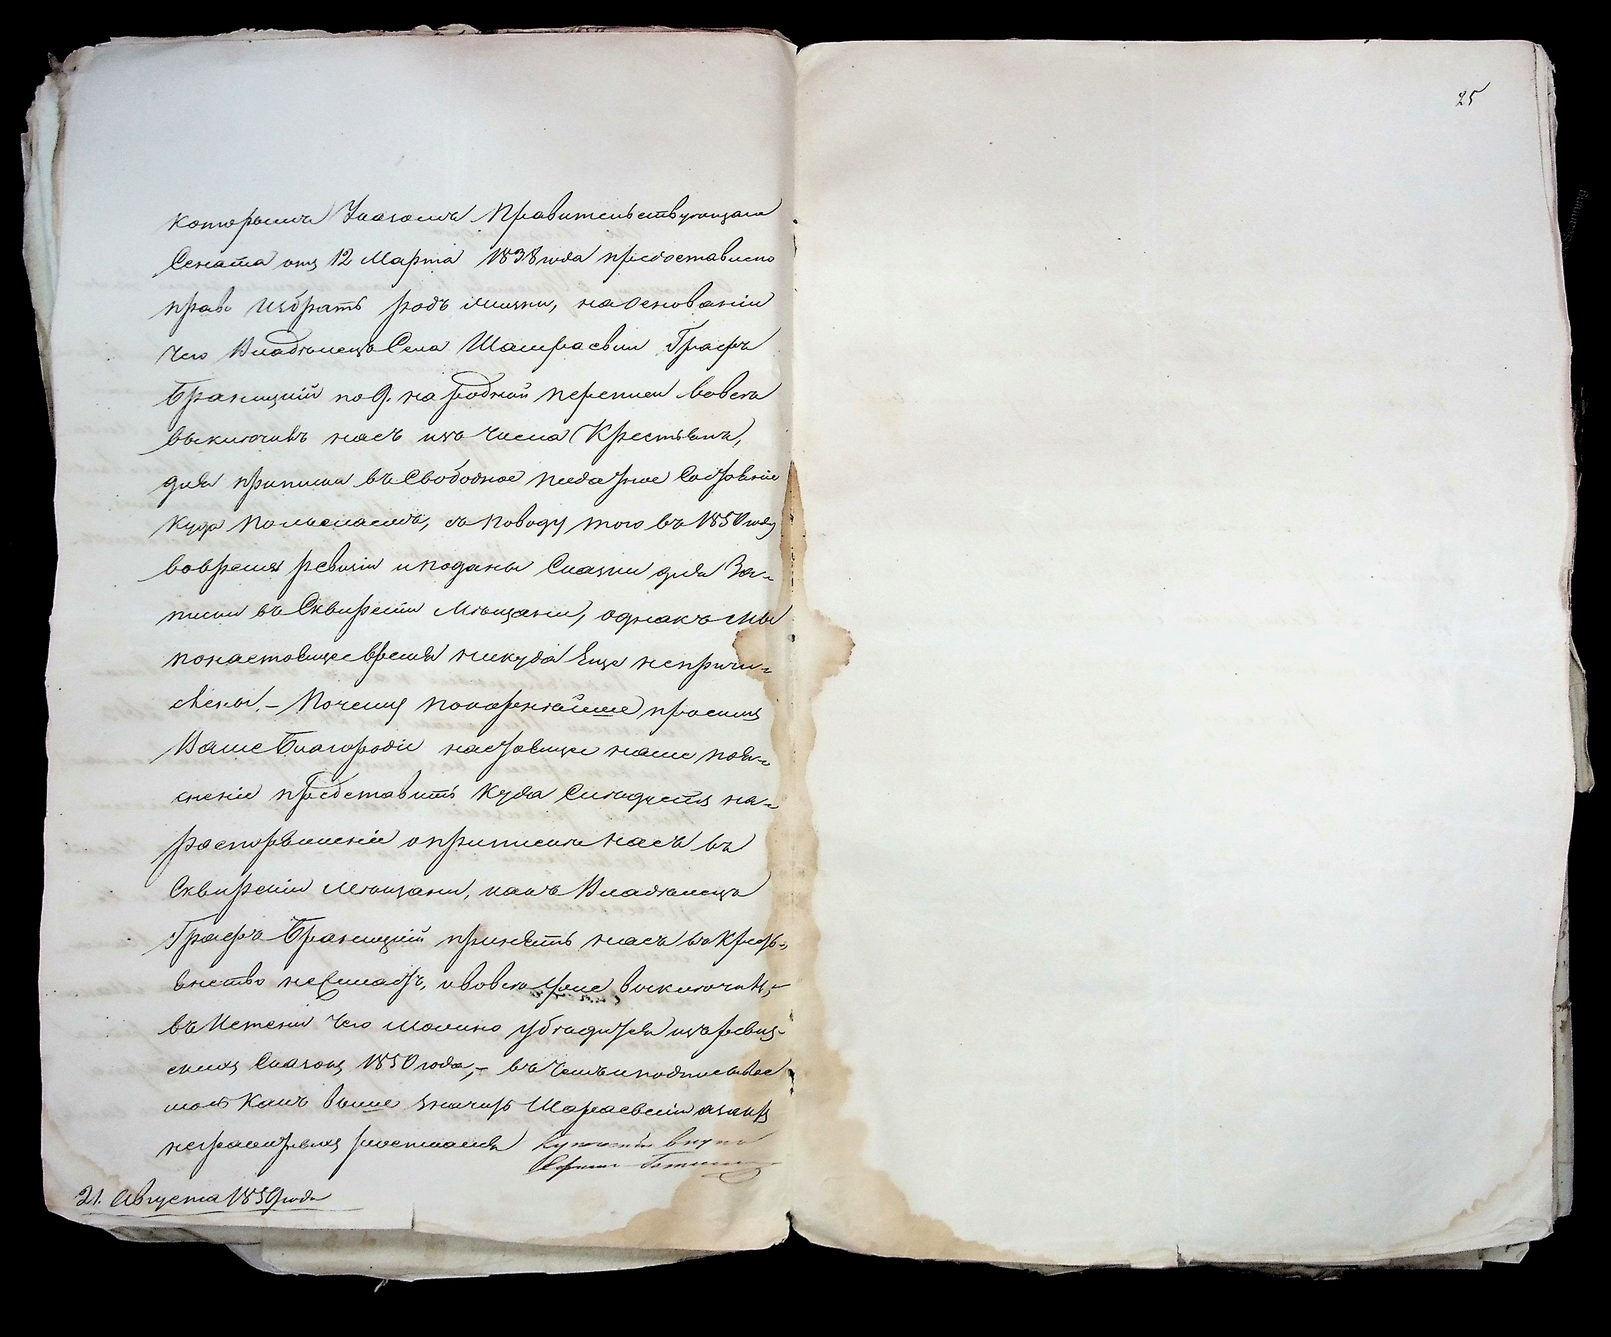 25
которымъ Указомъ Правительствующаго
Сената отъ 12 Марта 1838 года предоставлено
право избрать родъ жизни, на основаніи
чего Владѣлецъ Села Шамраевки Графъ
Браницкій по 9. народной переписи вовсе
выключивъ насъ изъ числа Крестьянъ,
для приписки въ Свободное податное Состояніе
куда пожелаемъ, по поводу того въ 1850 году
вовремя ревизіи и поданы Сказки для За-
писки въ Сквирскіи Мѣщани, однакъ мы
понастоящее время никуда Еще непричи-
слены. – Почему покорнѣйше просимъ
Ваше Благородіе настоящее наше поя-
сненіе представить куда Слѣдуетъ на-
распоряженіе о припискѣ насъ въ
Сквирскіи мѣщани, какъ Владѣлецъ
Графъ Браницкій принять насъ въ Кресть-
янство нежелаетъ, и вовсе уже выключилъ, –
въ Истенѣ чего можно убѣдится изъ ревиз-
скихъ Сказокъ 1850 года, – въ чемъ и подписываемся
какъ выше значитъ Шамраевскіи
неграмотныхъ росписался
21. Августа 1859 года